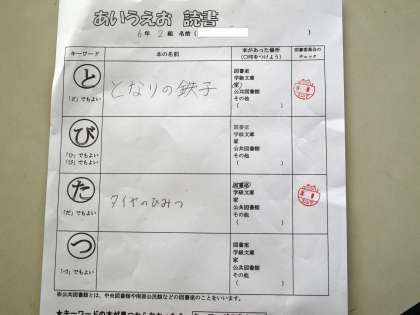 あいうえお 読書
6年 2組 名前( )
キーワード 本の名前 本があった場所 図書委員会の
(○印をつけよう) チェック
と
「ど」でもよい
となりの鉄子
図書室
学級文庫
家
公共図書館
その他
( )
び
「ひ」でもよい
「ぴ」でもよい
図書室
学級文庫
家
公共図書館
その他
( )
た
「だ」でもよい
タイヤのひみつ
図書室
学級文庫
家
公共図書館
その他
( )
つ
「づ」でもよい
図書室
学級文庫
家
公共図書館
その他
( )
※公共図書館とは、中央図書館や南部公民館などの図書室のことをいいます。